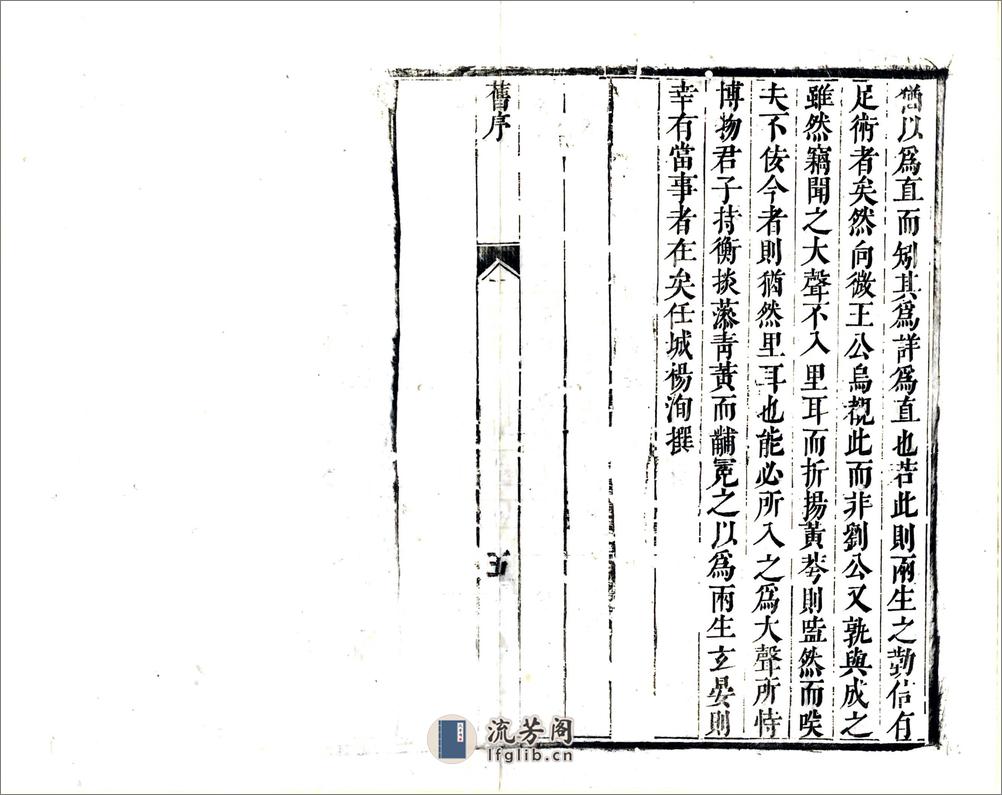 猶以爲直而矧其爲詳爲直也若此則兩生之勤信有
足術者矣然向微王公烏覩此而非劉公又孰與成之
雖然竊聞之大聲不入里耳而折揚黃荂則嗑然而㗛
夫不佞今者則猶然里耳也能必所入之爲大聲所恃
博物君子持衡掞藻靑黃而黼冕之以爲兩生玄晏則
幸有當事者在矣任城楊洵撰
舊序
流芳阁
lfglib.cn